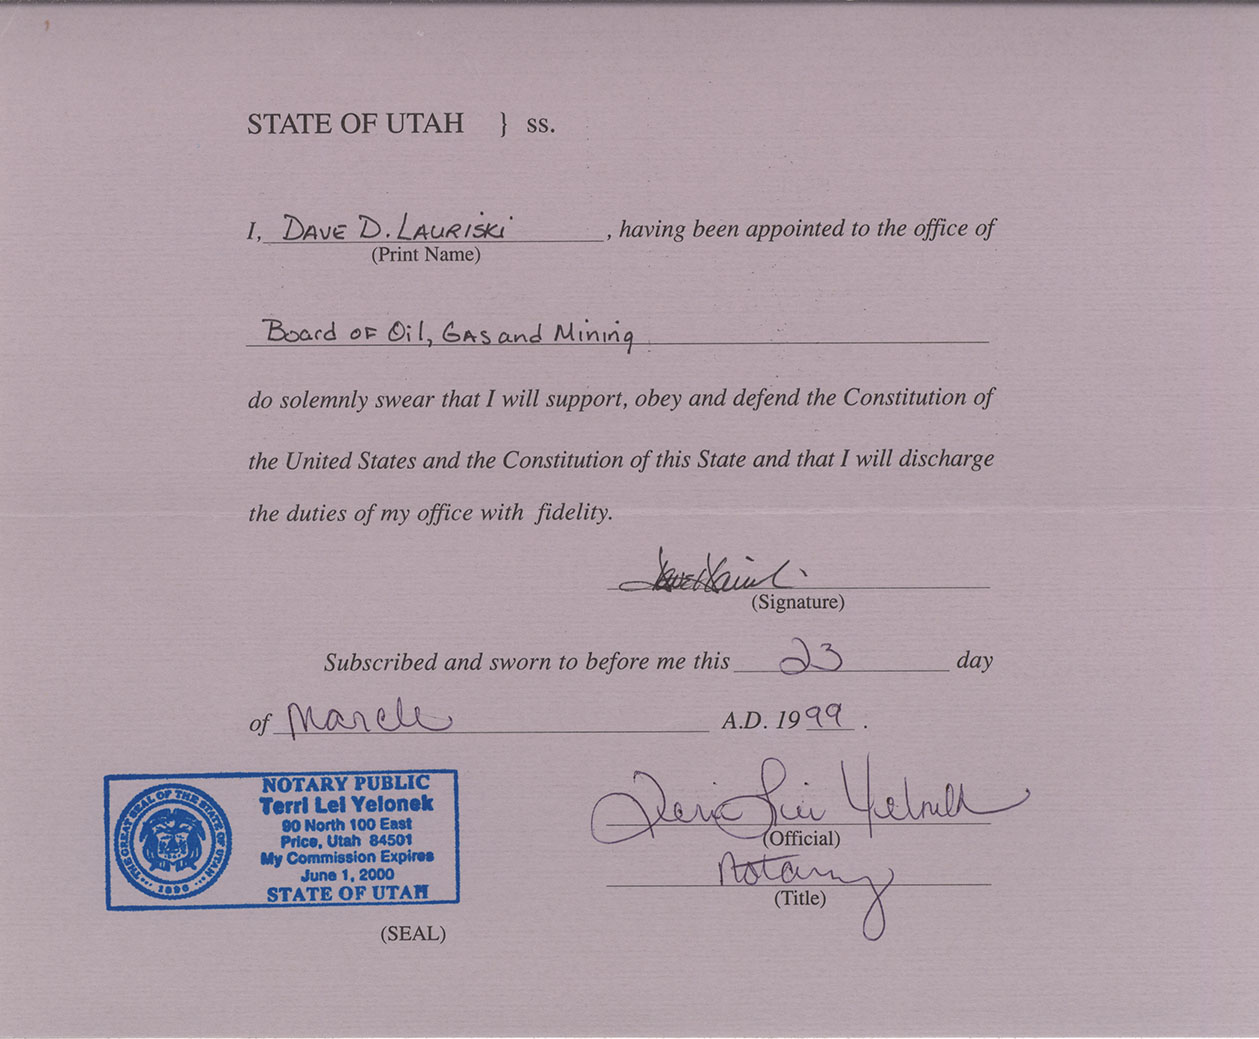 STATE OF UTAH } ss.
I, DAVE D. LAURISKI , having been appointed to the office of
(Print Name)
Board of Oil, Gas and Mining
do solemnly swear that I will support, obey and defend the Constitution of
the United States and the Constitution of this State and that I will discharge
the duties of my office with fidelity.
(Signature)
Subscribed and sworn to before me this 23 day
of March A.D. 1999 .
NOTARY PUBLIC
Terri Lei Yelonek
90 North 100 East
Price, Utah 84501
My Commission Expires
June 1, 2000
STATE OF UTAH
THE GREAT SEAL OF THE STATE OF UTAH
1896
(Official)
Notary
(Title)
(SEAL)